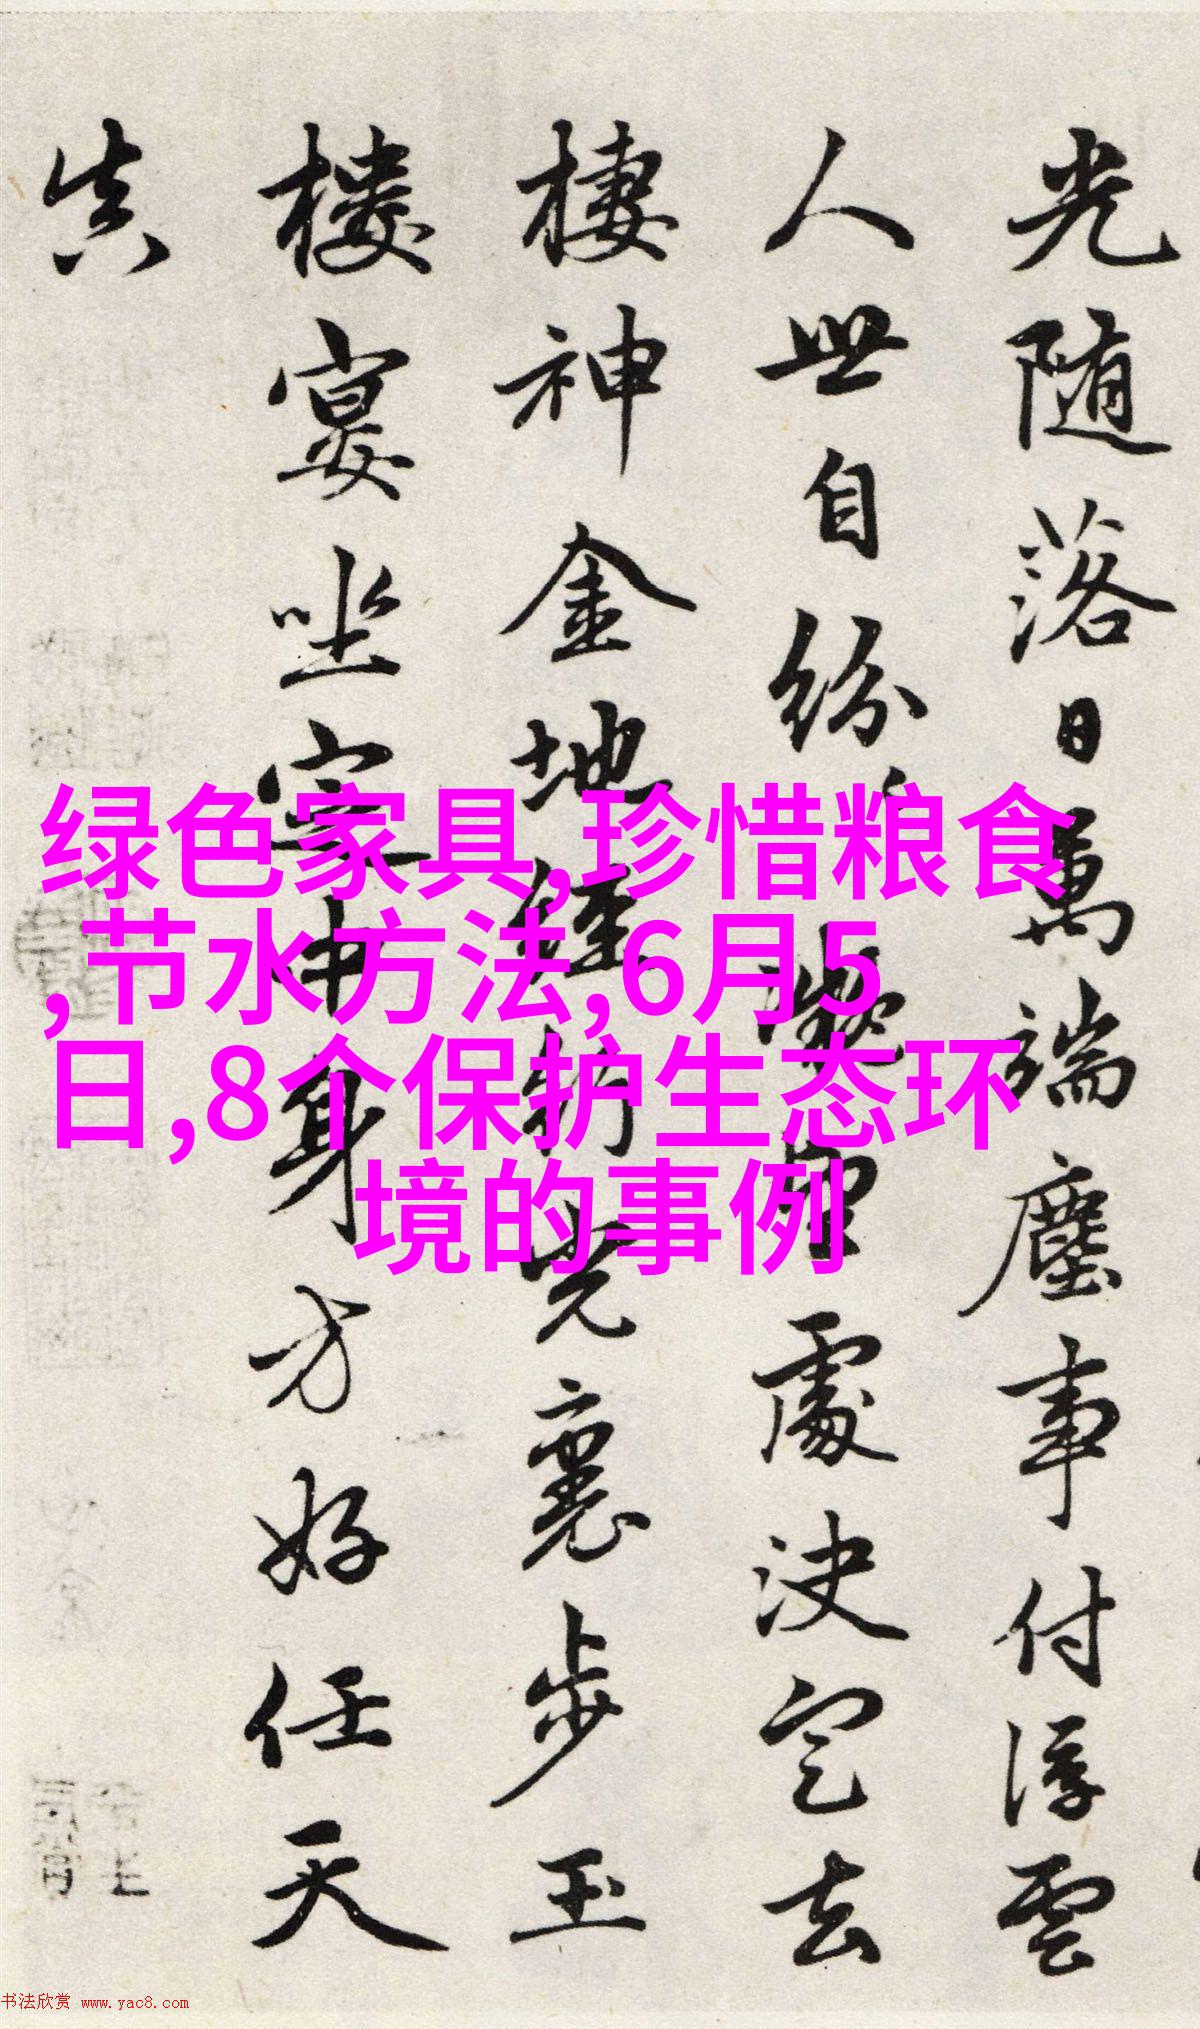 绿色家具,珍惜粮食
,节水方法,6月5
日,8个保护生态环
境的事例
光随落日萬端塵事付浮雲
人世自紛凝望處決定去
棲神金地經行光裏步玉
樓宴坐寂中身方好任天
真
书法欣赏 www.yac8.com